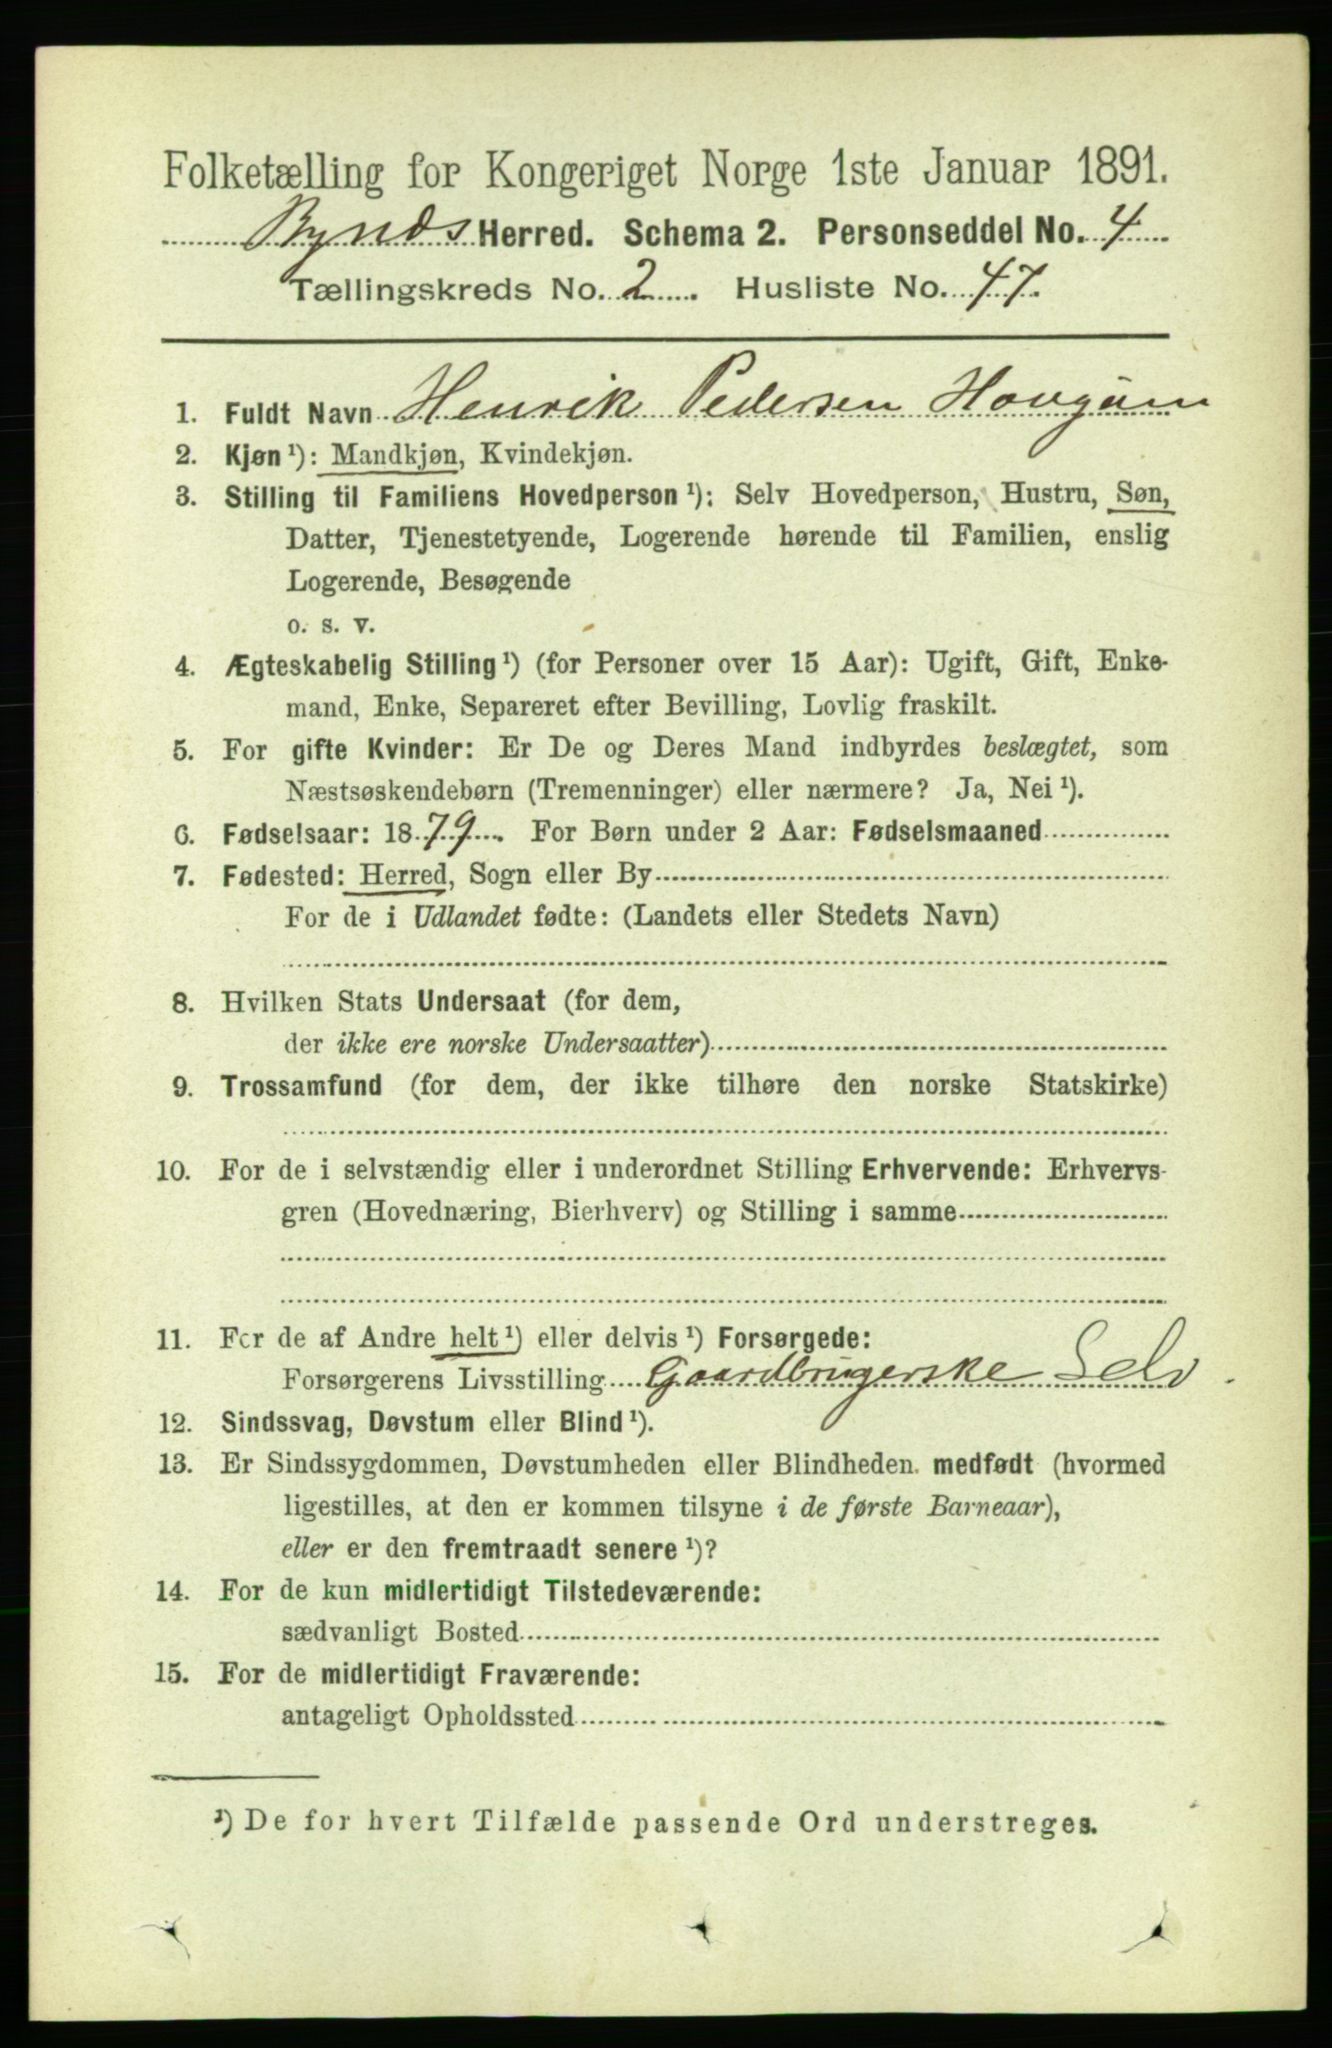 Folketælling for Kongeriget Norge 1ste Januar 1891.
Byneds Herred. Schema 2. Personseddel No. 4
Tællingskreds No. 2. Husliste No. 47.
1. Fuldt Navn Henrik Pedersen Hougum
2. Kjøn ¹): Mandkjøn, Kvindekjøn.
3. Stilling til Familiens Hovedperson ¹): Selv Hovedperson, Hustru, Søn,
Datter, Tjenestetyende, Logerende hørende til Familien, enslig
Logerende, Besøgende
o. s. v.
4. Ægteskabelig Stilling ¹) (for Personer over 15 Aar): Ugift, Gift, Enke-
mand, Enke, Separeret efter Bevilling, Lovlig fraskilt.
5. For gifte Kvinder: Er De og Deres Mand indbyrdes beslægtet, som
Næstsøskendebørn (Tremenninger) eller nærmere? Ja, Nei ¹).
6. Fødselsaar: 1879. For Børn under 2 Aar: Fødselsmaaned
7. Fødested: Herred, Sogn eller By
For de i Udlandet fødte: (Landets eller Stedets Navn)
8. Hvilken Stats Undersaat (for dem,
der ikke ere norske Undersaatter)
9. Trossamfund (for dem, der ikke tilhøre den norske Statskirke)
10. For de i selvstændig eller i underordnet Stilling Erhvervende: Erhvervs-
gren (Hovednæring, Bierhverv) og Stilling i samme
11. For de af Andre helt ¹) eller delvis ¹) Forsørgede:
Forsørgerens Livsstilling Gaardbrugerske Selv.
12. Sindssvag, Døvstum eller Blind ¹).
13. Er Sindssygdommen, Døvstumheden eller Blindheden medfødt (hvormed
ligestilles, at den er kommen tilsyne i de første Barneaar),
eller er den fremtraadt senere ¹)?
14. For de kun midlertidigt Tilstedeværende:
sædvanligt Bosted
15. For de midlertidigt Fraværende:
antageligt Opholdssted
¹) De for hvert Tilfælde passende Ord understreges.